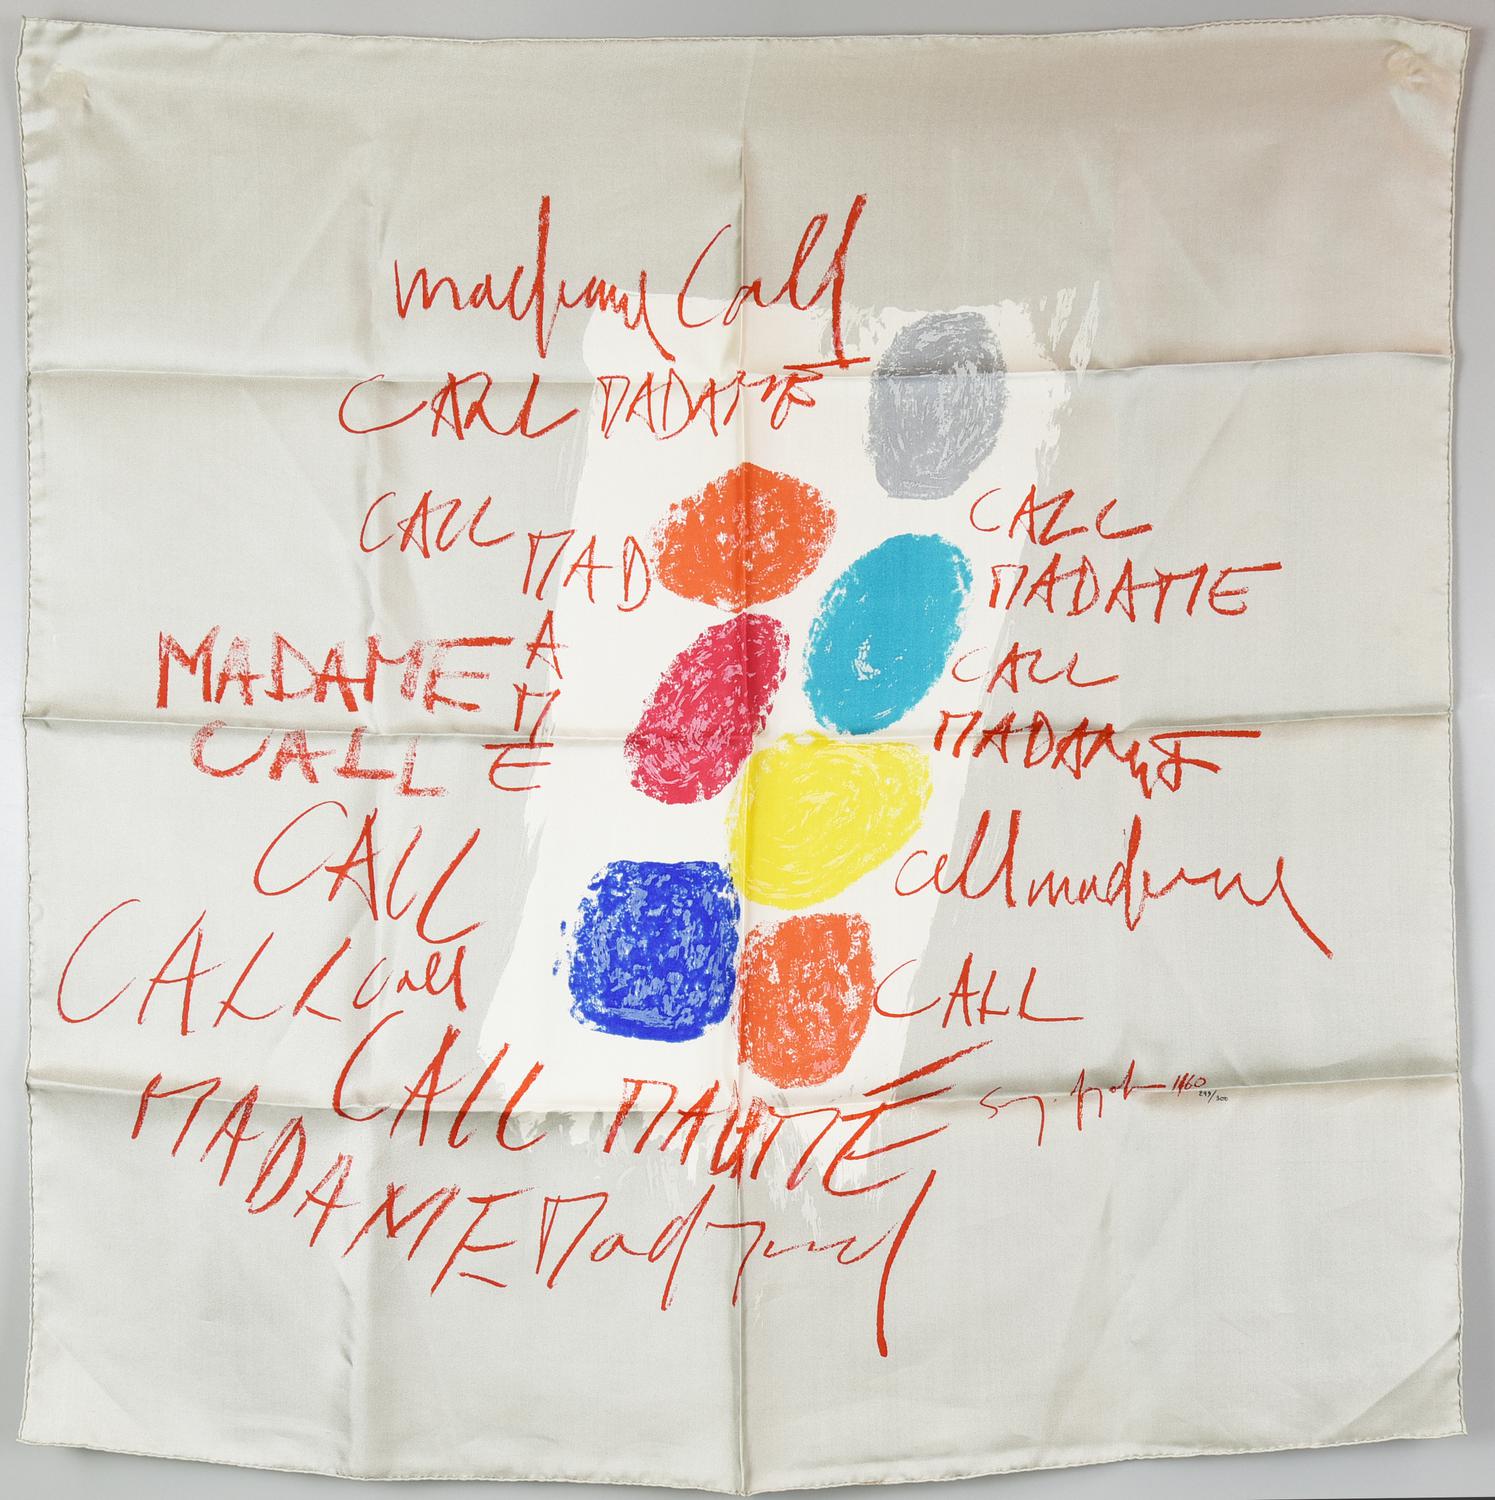 madame Call
CALL MADAME
CALL MAD
A
M
E
CALL
MADAME
MADAME
CALL
CALL
MADAME
CALL
call madame
CALL call
CALL
CALL MADAME
1960
299/300
MADAME Madame